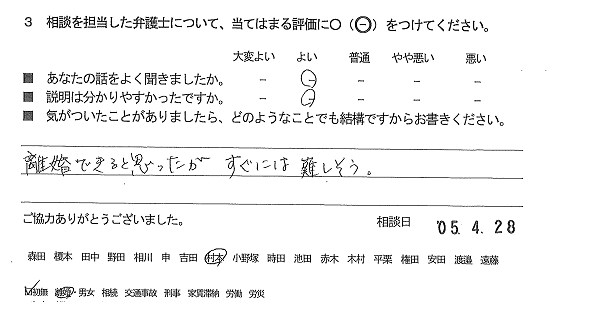 3 相談を担当した弁護士について、当てはまる評価に○（⊖）をつけてください。
大変よい よい 普通 やや悪い 悪い
■ あなたの話をよく聞きましたか。 － － － － －
■ 説明は分かりやすかったですか。 － － － － －
■ 気がついたことがありましたら、どのようなことでも結構ですからお書きください。
離婚できると思ったが すぐには 難しそう。
ご協力ありがとうございました。 相談日 '05.4.28
森田 榎本 田中 野田 相川 申 吉田 村本 小野塚 時田 池田 赤木 木村 平栗 権田 安田 渡邉 遠藤
初無 離婚 男女 相続 交通事故 刑事 家賃滞納 労働 労災